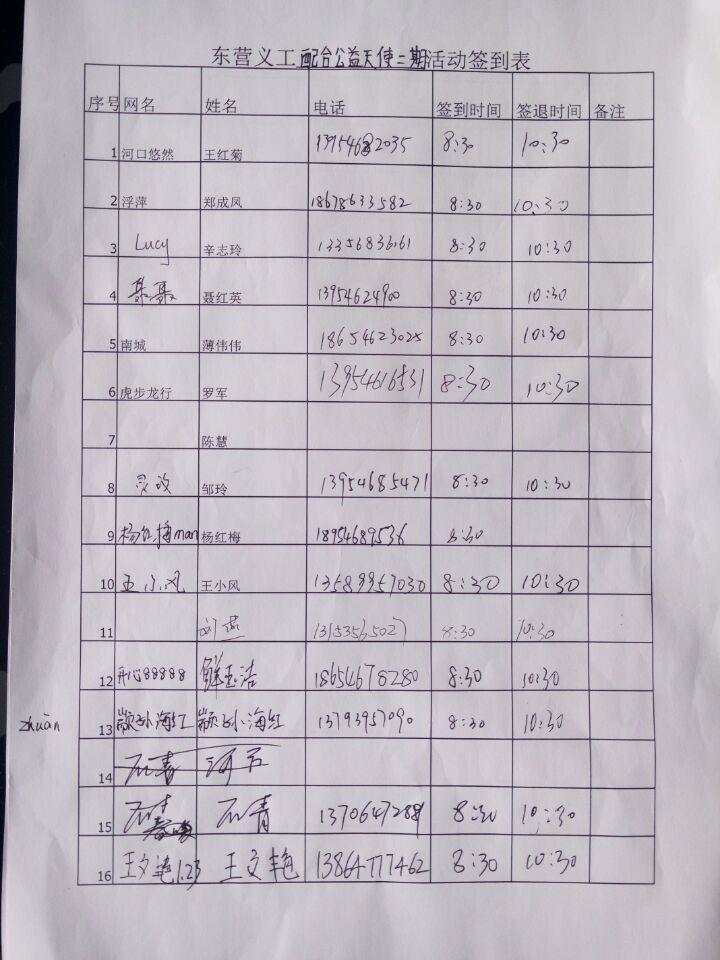 东营义工配合公益天使二期活动签到表
序号 网名 姓名 电话 签到时间 签退时间 备注
1 河口悠然 王红菊 13954682035 8:30 10:30
2 浮萍 郑成凤 18678633582 8:30 10:30
3 Lucy 辛志玲 13356836161 8:30 10:30
4 聂红英 13954624900 8:30 10:30
5 南城 薄伟伟 18654623025 8:30 10:30
6 虎步龙行 罗军 13954616531 8:30 10:30
7 陈慧
8 灵政 邹玲 13954685471 8:30 10:30
9 杨红梅man 杨红梅 18954689536 8:30
10 王小风 王小风 13589957030 8:30 10:30
11 刘燕 13153565027 8:30 10:30
12 开心88888 鲜玉洁 18654678280 8:30 10:30
zhuàn 13 颛孙海红 颛孙海红 13793957090 8:30 10:30
14
15 石青 13706472889 8:30 10:30
16 王文艳123 王文艳 13864777462 8:30 10:30